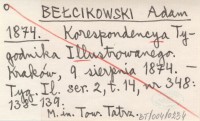 BEŁCIKOWSKI Adam
1874. Korespondencya Ty-
godnika Illustrowanego.
Kraków, 9 sierpnia 1874. —
Tyg. Il. ser. 2, t. 14, nr 348:
138-139.
M. in. Tow. Tatrz.